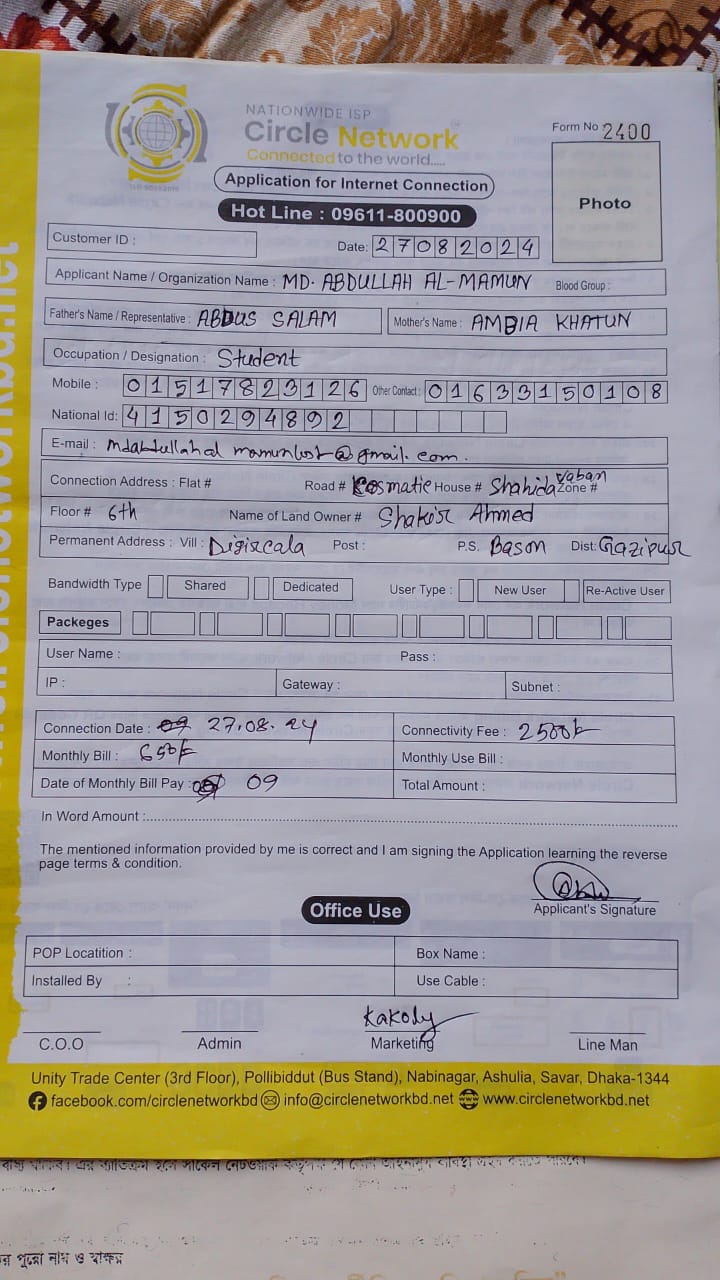 NATIONWIDE ISP
Circle Network
Connected to the world.....
ISO 9001:2015
Form No 2400
Photo
Application for Internet Connection
Hot Line : 09611-800900
Customer ID :
Date: 27082024
Applicant Name / Organization Name : MD. ABDULLAH AL-MAMUN Blood Group :
Father's Name / Representative : ABDUS SALAM Mother's Name : AMBIA KHATUN
Occupation / Designation : Student
Mobile : 01517823126 Other Contact : 01633150108
National Id: 4150294892
E-mail : @gmail.com.
Connection Address : Flat # Road # Kosmatic House # Shahida Vaban Zone #
Floor # 6th Name of Land Owner # Shakir Ahmed
Permanent Address : Vill : Post : P.S. Bason Dist: Gazipur
Bandwidth Type Shared Dedicated User Type : New User Re-Active User
Packeges
User Name : Pass :
IP : Gateway : Subnet :
Connection Date : 27.08.24 Connectivity Fee : 2500/-
Monthly Bill : 650/- Monthly Use Bill :
Date of Monthly Bill Pay : 09 Total Amount :
In Word Amount :
The mentioned information provided by me is correct and I am signing the Application learning the reverse
page terms & condition.
Applicant's Signature
Office Use
POP Locatition : Box Name :
Installed By : Use Cable :
Kakoly
C.O.O Admin Marketing Line Man
Unity Trade Center (3rd Floor), Pollibiddut (Bus Stand), Nabinagar, Ashulia, Savar, Dhaka-1344
facebook.com/circlenetworkbd info@circlenetworkbd.net www.circlenetworkbd.net